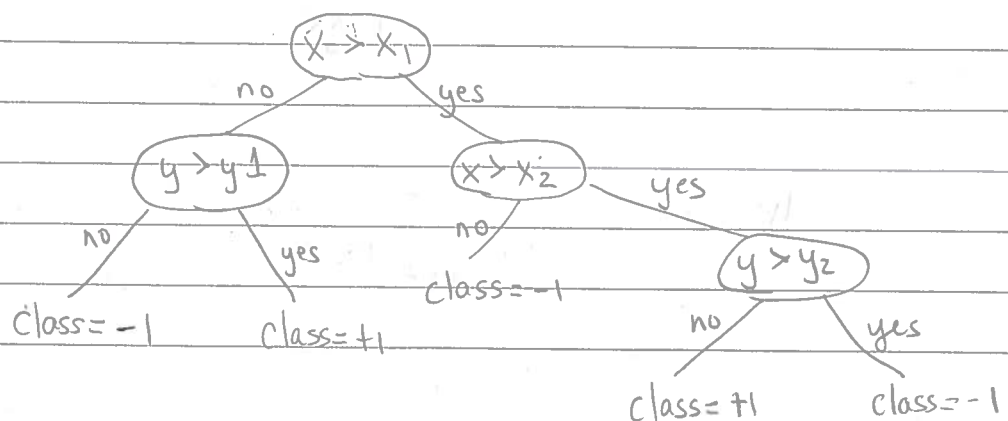 x > x1
no yes
y > y1 x > x2 yes
no yes no y > y2
class = -1 class = +1 class = -1 no yes
class = +1 class = -1